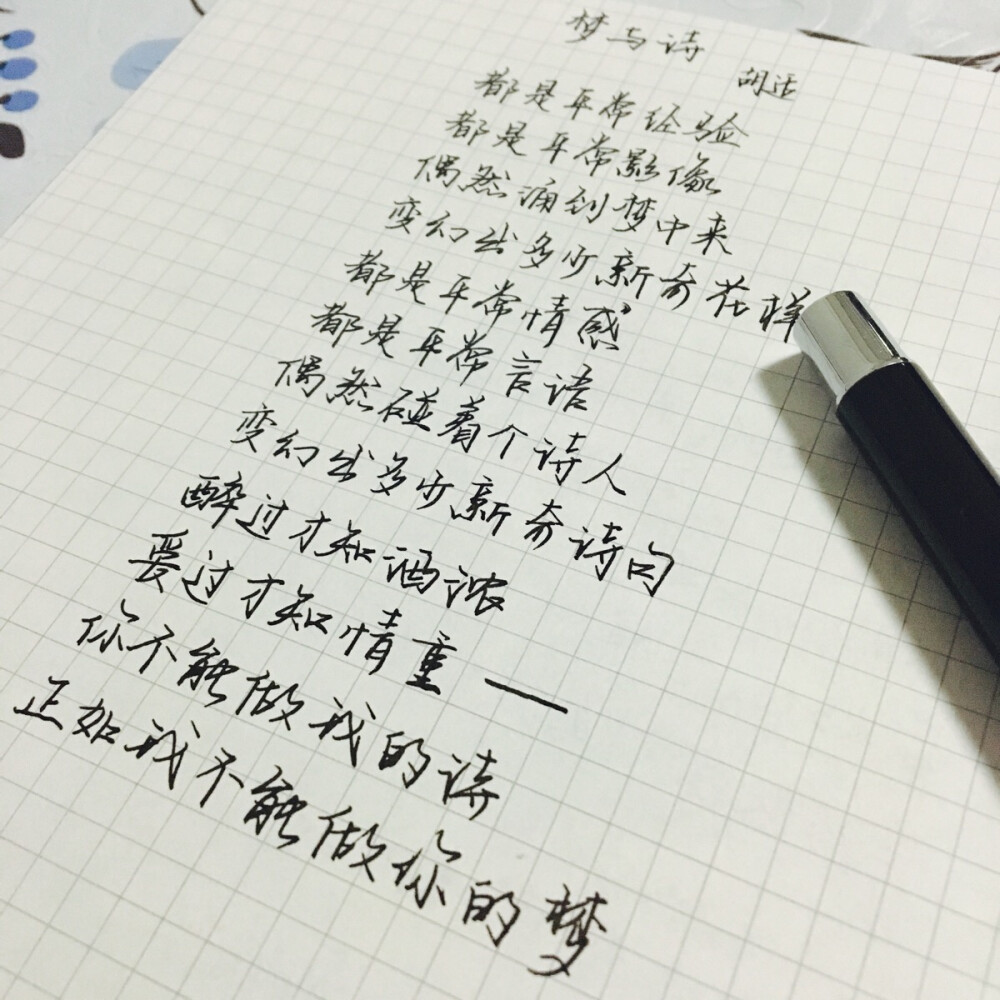 梦与诗
胡适
都是平常经验
都是平常影像
偶然涌到梦中来
变幻出多少新奇花样
都是平常情感
都是平常言语
偶然碰着个诗人
变幻出多少新奇诗句
醉过才知酒浓
爱过才知情重——
你不能做我的诗
正如我不能做你的梦